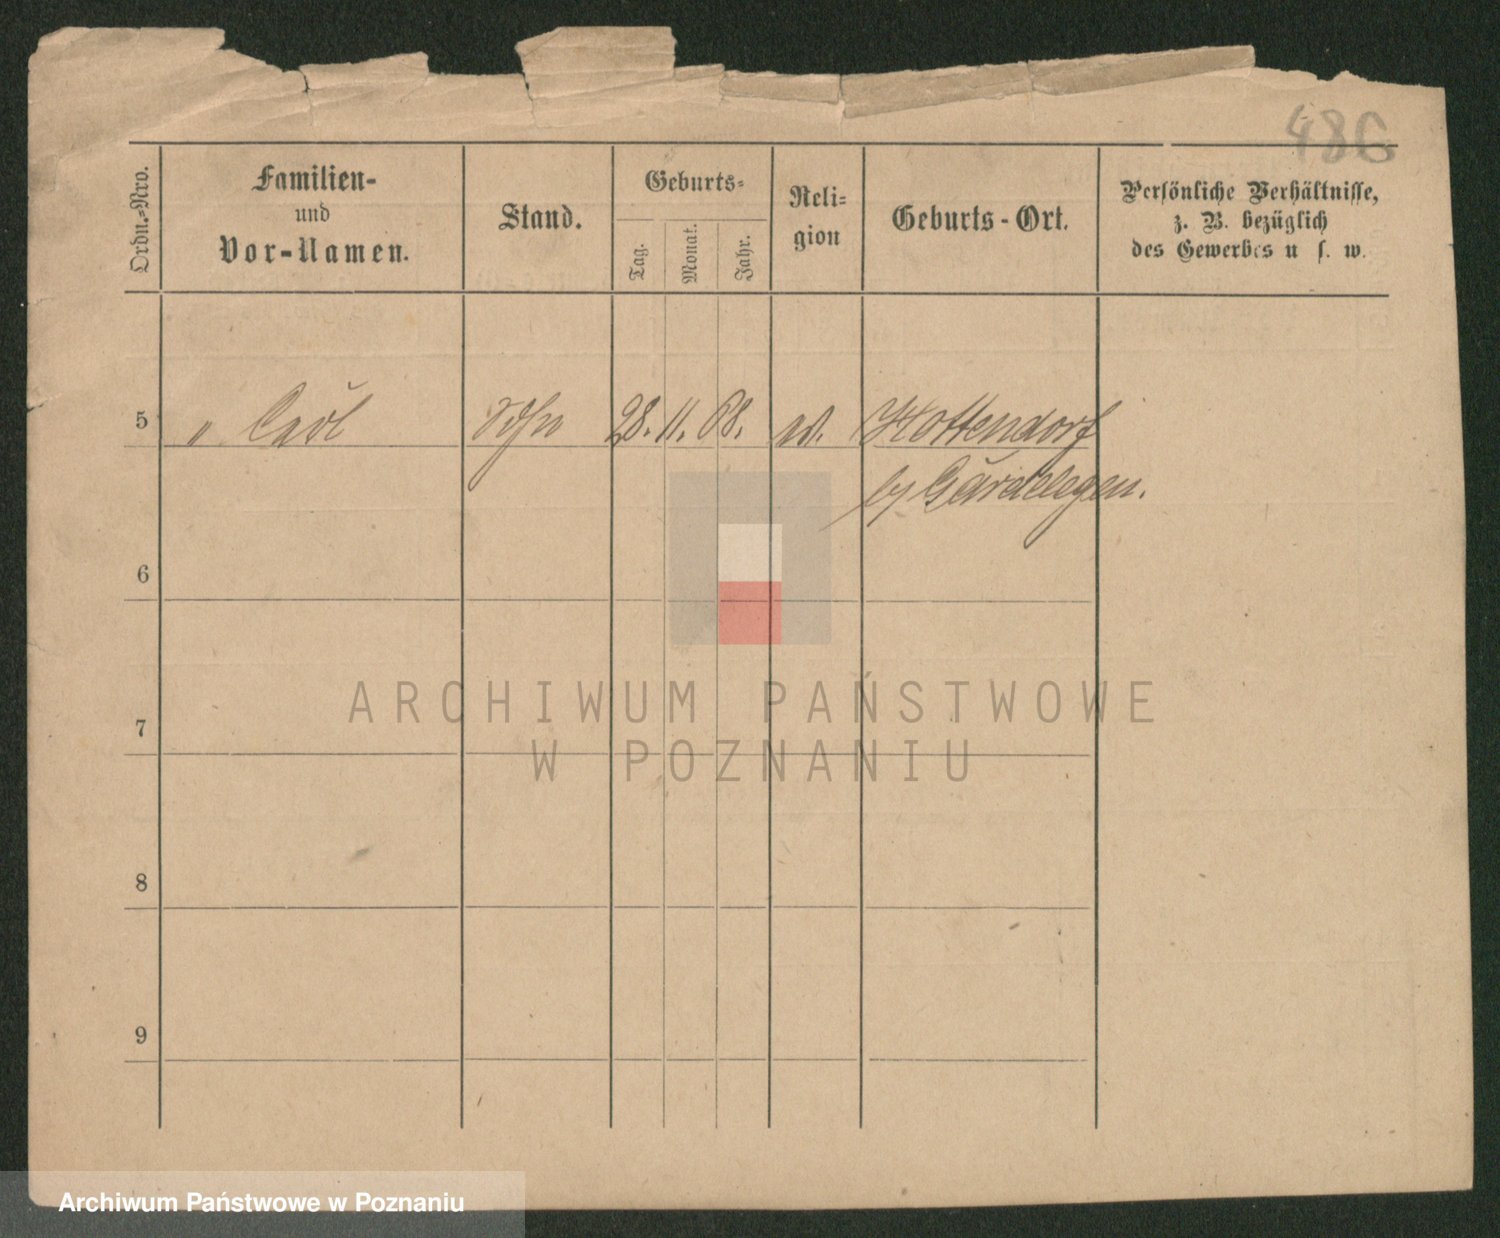 486
Ordn.-Nro.
Familien-
und
Vor-Namen.
Stand.
Geburts-
Tag.
Monat.
Jahr.
Reli-
gion
Geburts-Ort.
Persönliche Verhältnisse,
z. B. bezüglich
des Gewerbes u s. w.
5
" Carl
Sohn
28. 11. 68.
Hottendorf
by Gardelegen.
6
7
8
9
ARCHIWUM PAŃSTWOWE
W POZNANIU
Archiwum Państwowe w Poznaniu